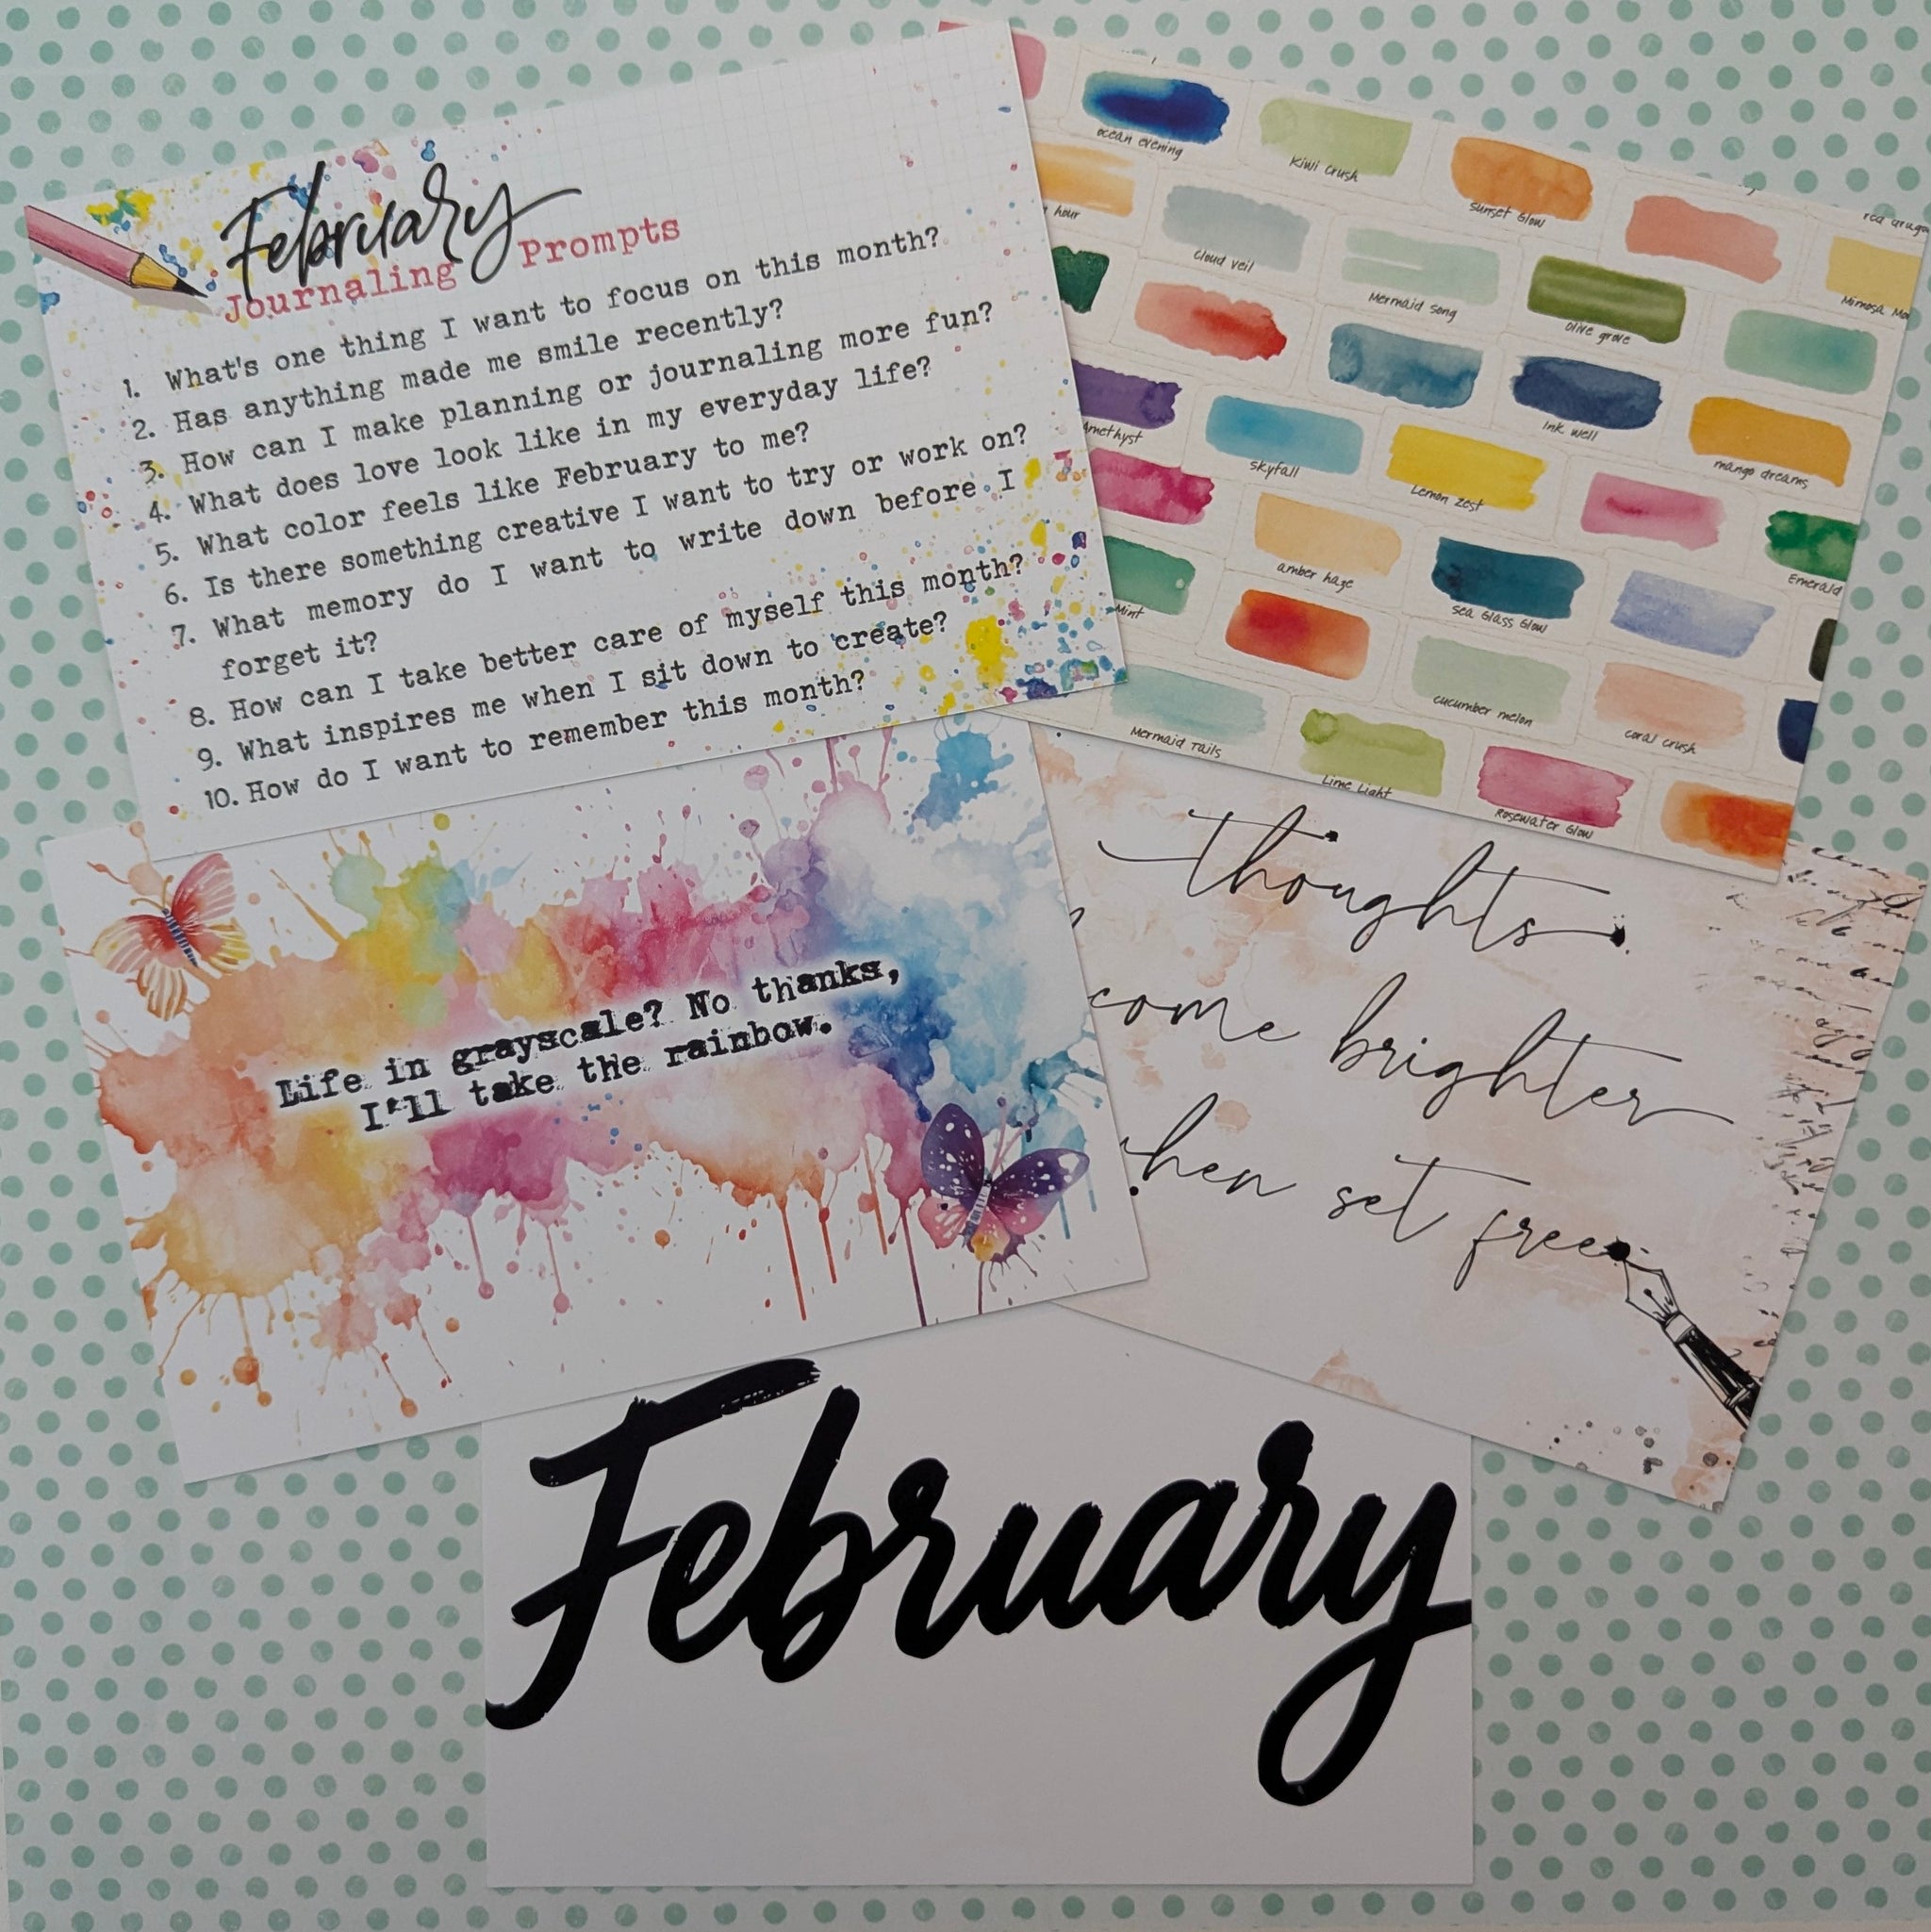 February
Journaling Prompts
1. What's one thing I want to focus on this month?
2. Has anything made me smile recently?
3. How can I make planning or journaling more fun?
4. What does love look like in my everyday life?
5. What color feels like February to me?
6. Is there something creative I want to try or work on?
7. What memory do I want to write down before I
forget it?
8. How can I take better care of myself this month?
9. What inspires me when I sit down to create?
10. How do I want to remember this month?
ocean evening
Kiwi crush
sunset Glow
hour
cloud veil
Mermaid song
olive grove
Mimosa
Amethyst
skyfall
Ink well
mango dreams
Lemon zest
Mint
amber haze
sea Glass Glow
Emerald
Mermaid Tails
cucumber melon
coral crush
Lime Light
Rosewater Glow
Life in grayscale? No thanks,
I'll take the rainbow.
thoughts
come brighter
hen set free
February